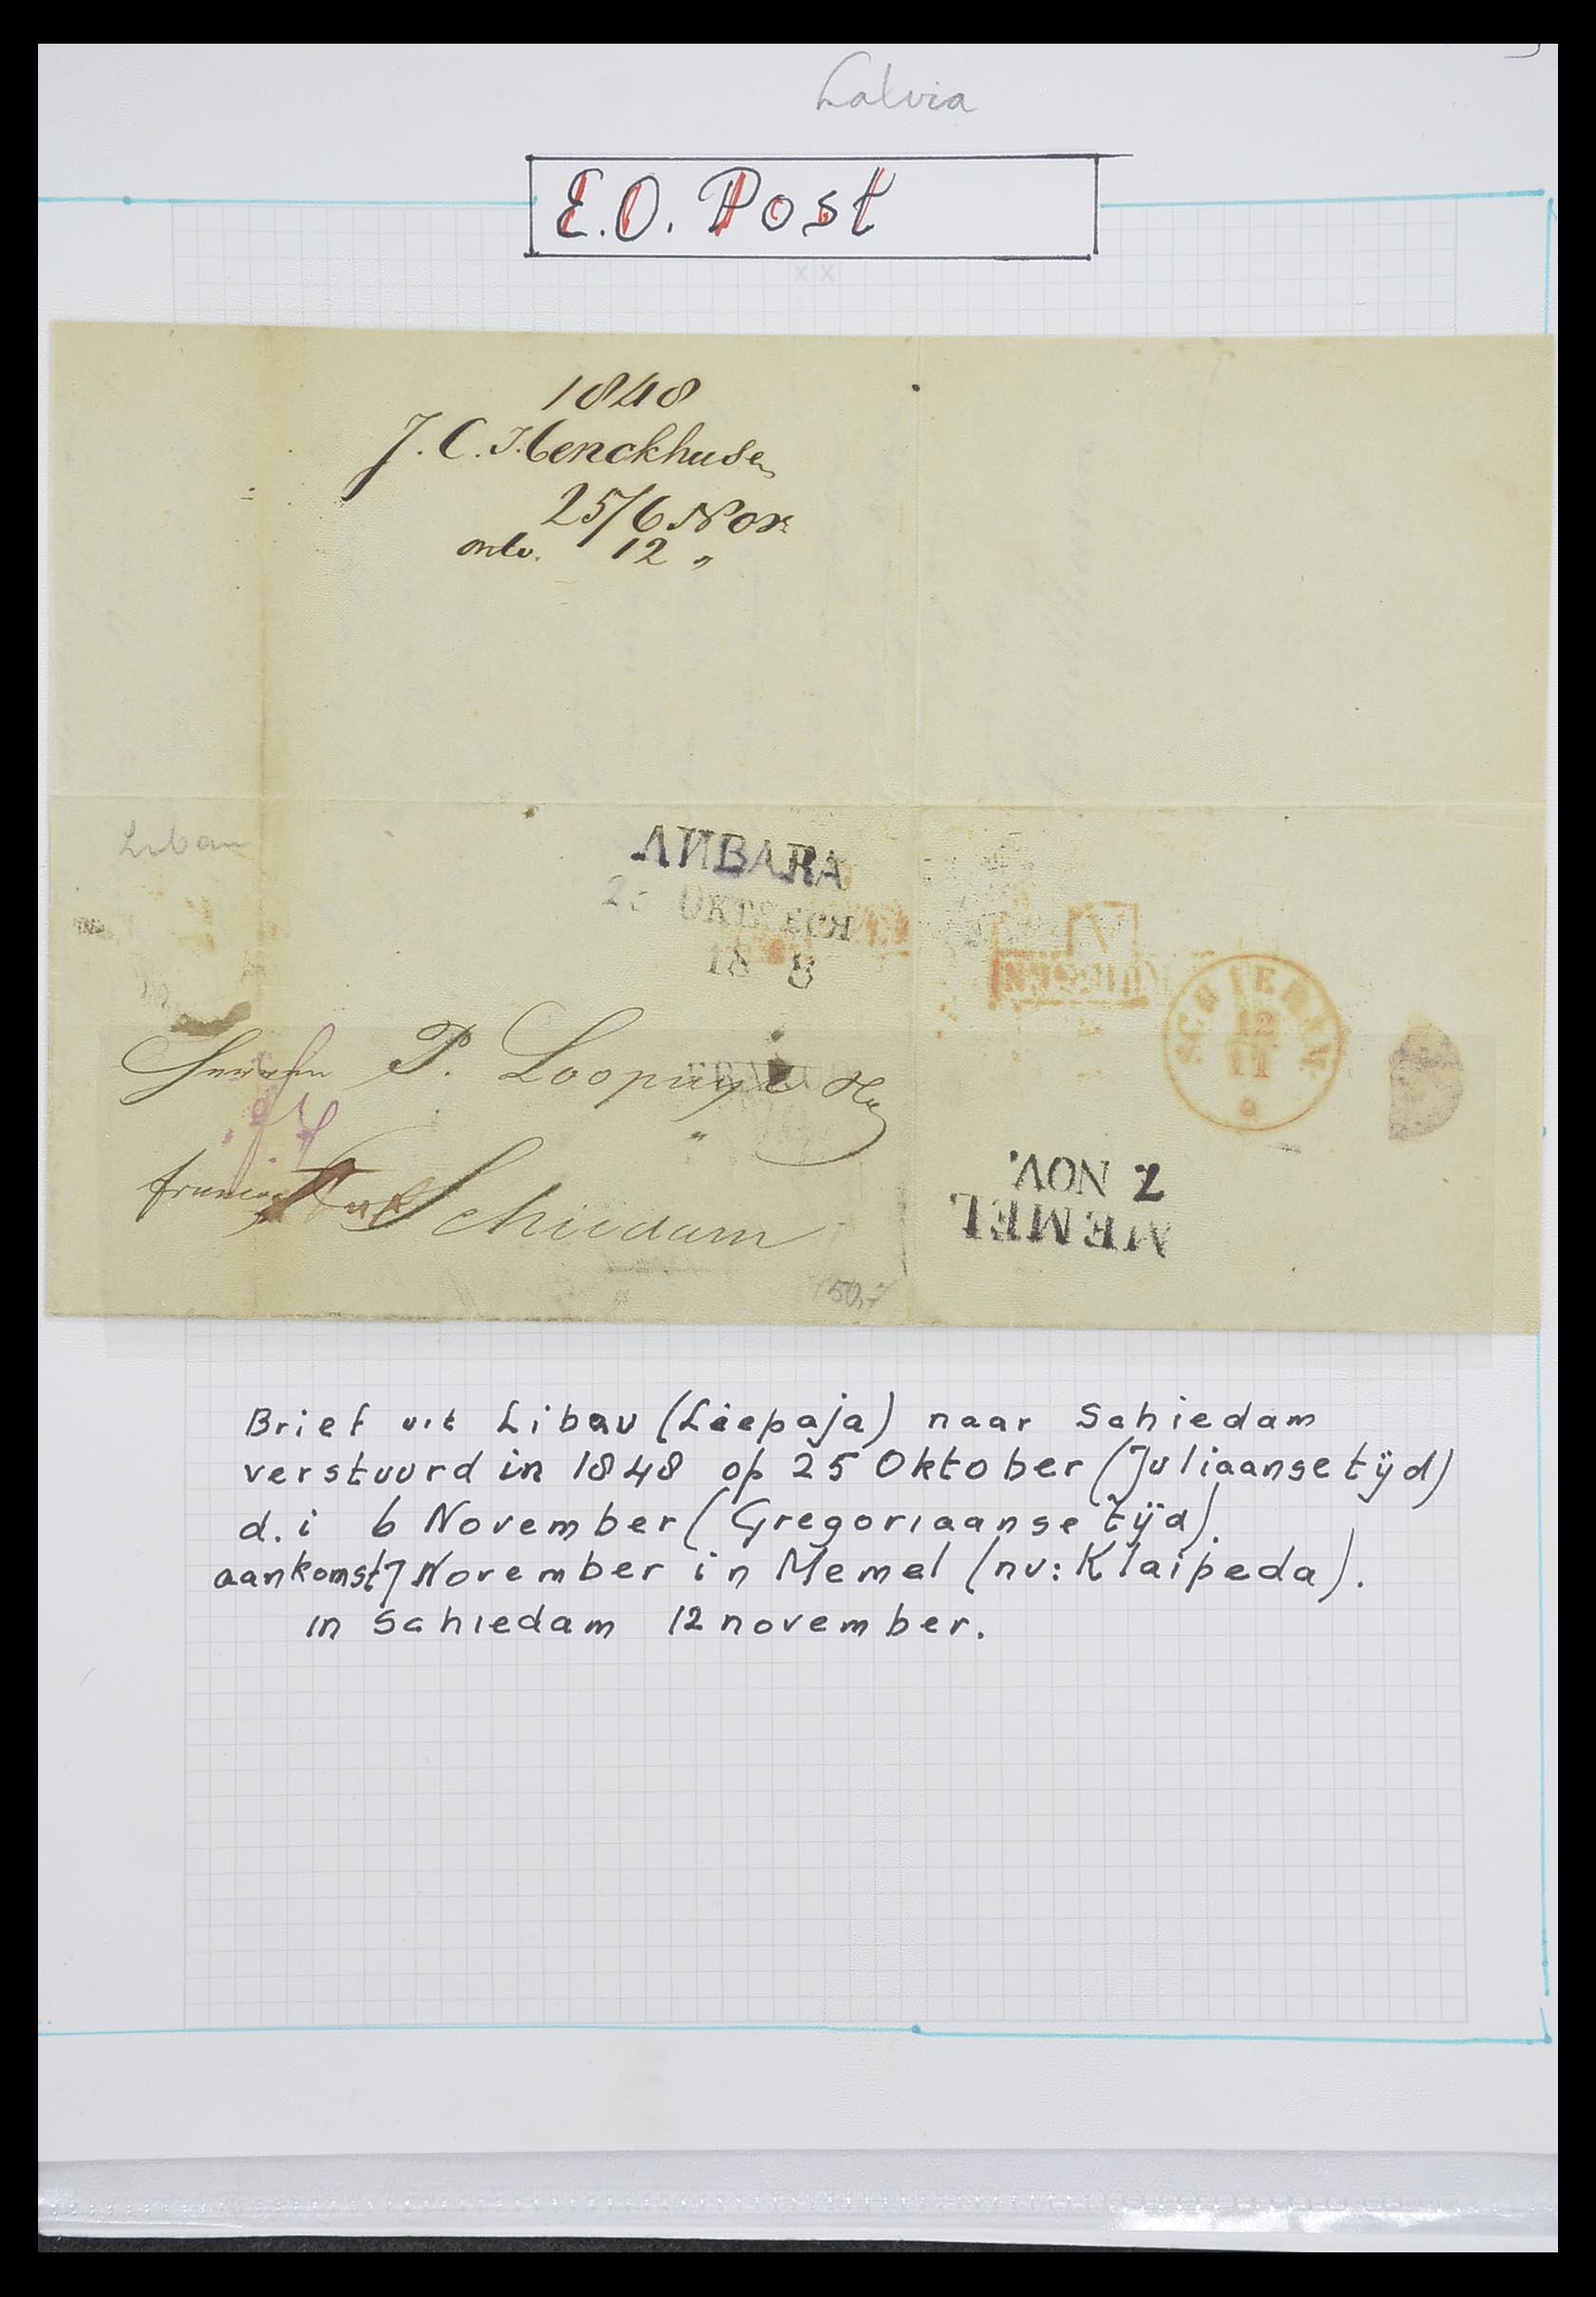 Latvia
E.O. Post
x x
1848
J. C. Henckhusen
25/6 Nov
ontv. 12 "
Libau
ЛИВАВА
25 ОКТ
18 8
SCHIEDAM
12
11
Herren P. Loopuyt
franco
Schiedam
MEMEL
7. NOV.
Brief uit Libau (Liepaja) naar Schiedam
verstuurd in 1848 op 25 Oktober (Juliaanse tijd)
d.i 6 November (Gregoriaanse tijd).
aankomst 7 November in Memel (nu: Klaipeda).
in Schiedam 12 november.